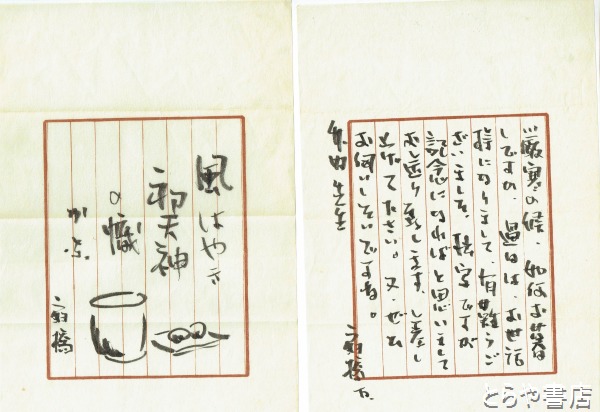 厳寒の候、如何お暮
しですか、過日は、お世話
様になりまして、有難うご
ざいました。拙字ですが
記念になればと思いまして
お送り致します、差し
上げてください。又、ぜひ
お伺いしたいですね。
扇橋
先生
風はやき
初天神
の幟
かな
扇橋
とらや書店